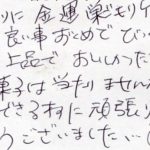 りに 金運巣ごもり
良い事おとめで びっ
上品で おいしかった
菓子は当たりませんで
できる様に 頑張り
うございました